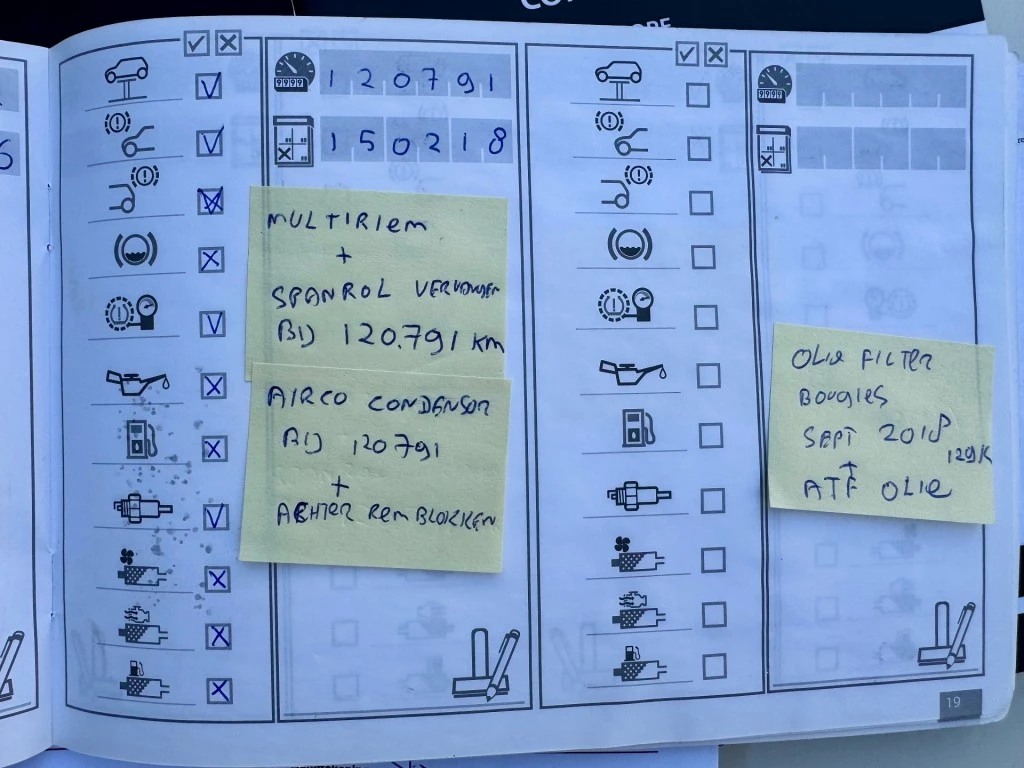 120791
150218
MULTIRIEM
+
SPANROL VERVANGEN
BIJ 120.791 KM
AIRCO CONDENSOR
BIJ 120791
+
ACHTER REM BLOKKEN
OLIE FILTER
BOUGIES
SEPT 2018
129K
+
ATF OLIE
19